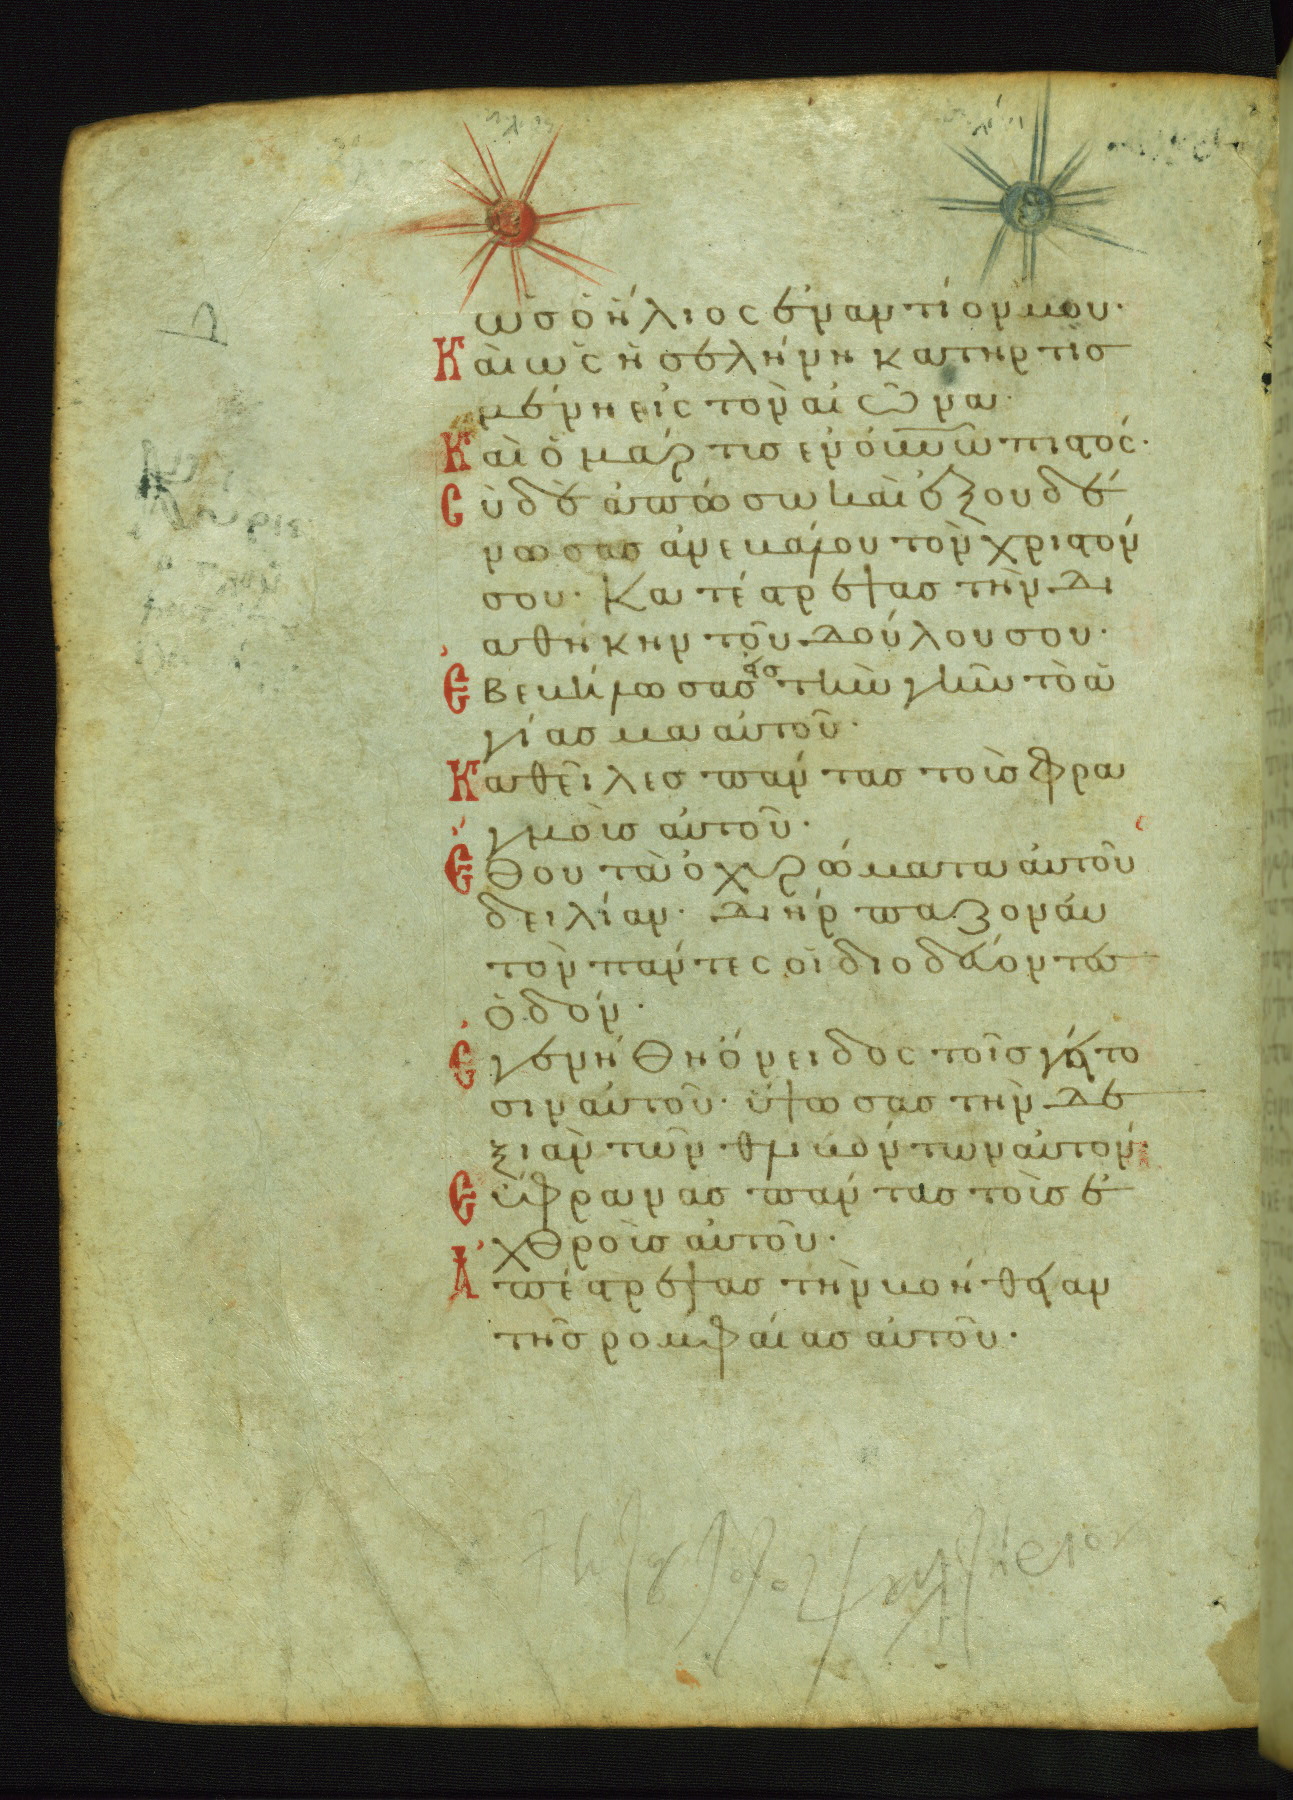 ὡσ ὁ ἥλιος ἐναντίον μου·
Καὶ ὡς ἡ σελήνη κατηρτισ
μένη εἰς τὸν αἰῶνα·
Καὶ ὁ μάρτισ ἐν οὐνῶ πιστός·
Σὺ δὲ ἀπώσω καὶ ἐξουδέ
νωσασ ἀνεβάλου τὸν χριστόν
σου· Κατέστρεψασ τὴν δι
αθήκην τοῦ δούλου σου·
Ἐβεβήλωσασ εἰσ τὴν γῆν τὸ ἁ
γίασμα αὐτοῦ·
Καθεῖλεσ πάντασ τοὺσ φρα
γμοὺσ αὐτοῦ·
Ἔθου τὰ ὀχυρώματα αὐτοῦ
δειλίαν· Διήρπαζον αὐ
τὸν πάντες οἱ διοδεύοντεσ
ὁδόν·
Ἐγενήθη ὄνειδος τοῖσ γείτο
σιν αὐτοῦ· ὕψωσασ τὴν δε
ξιὰν τῶν θλιβόντων αὐτόν:
Εὔφρανασ πάντασ τοὺσ ἐ
χθροὺσ αὐτοῦ·
Ἀπέστρεψασ τὴν βοήθειαν
τῆσ ρομφαίασ αὐτοῦ·